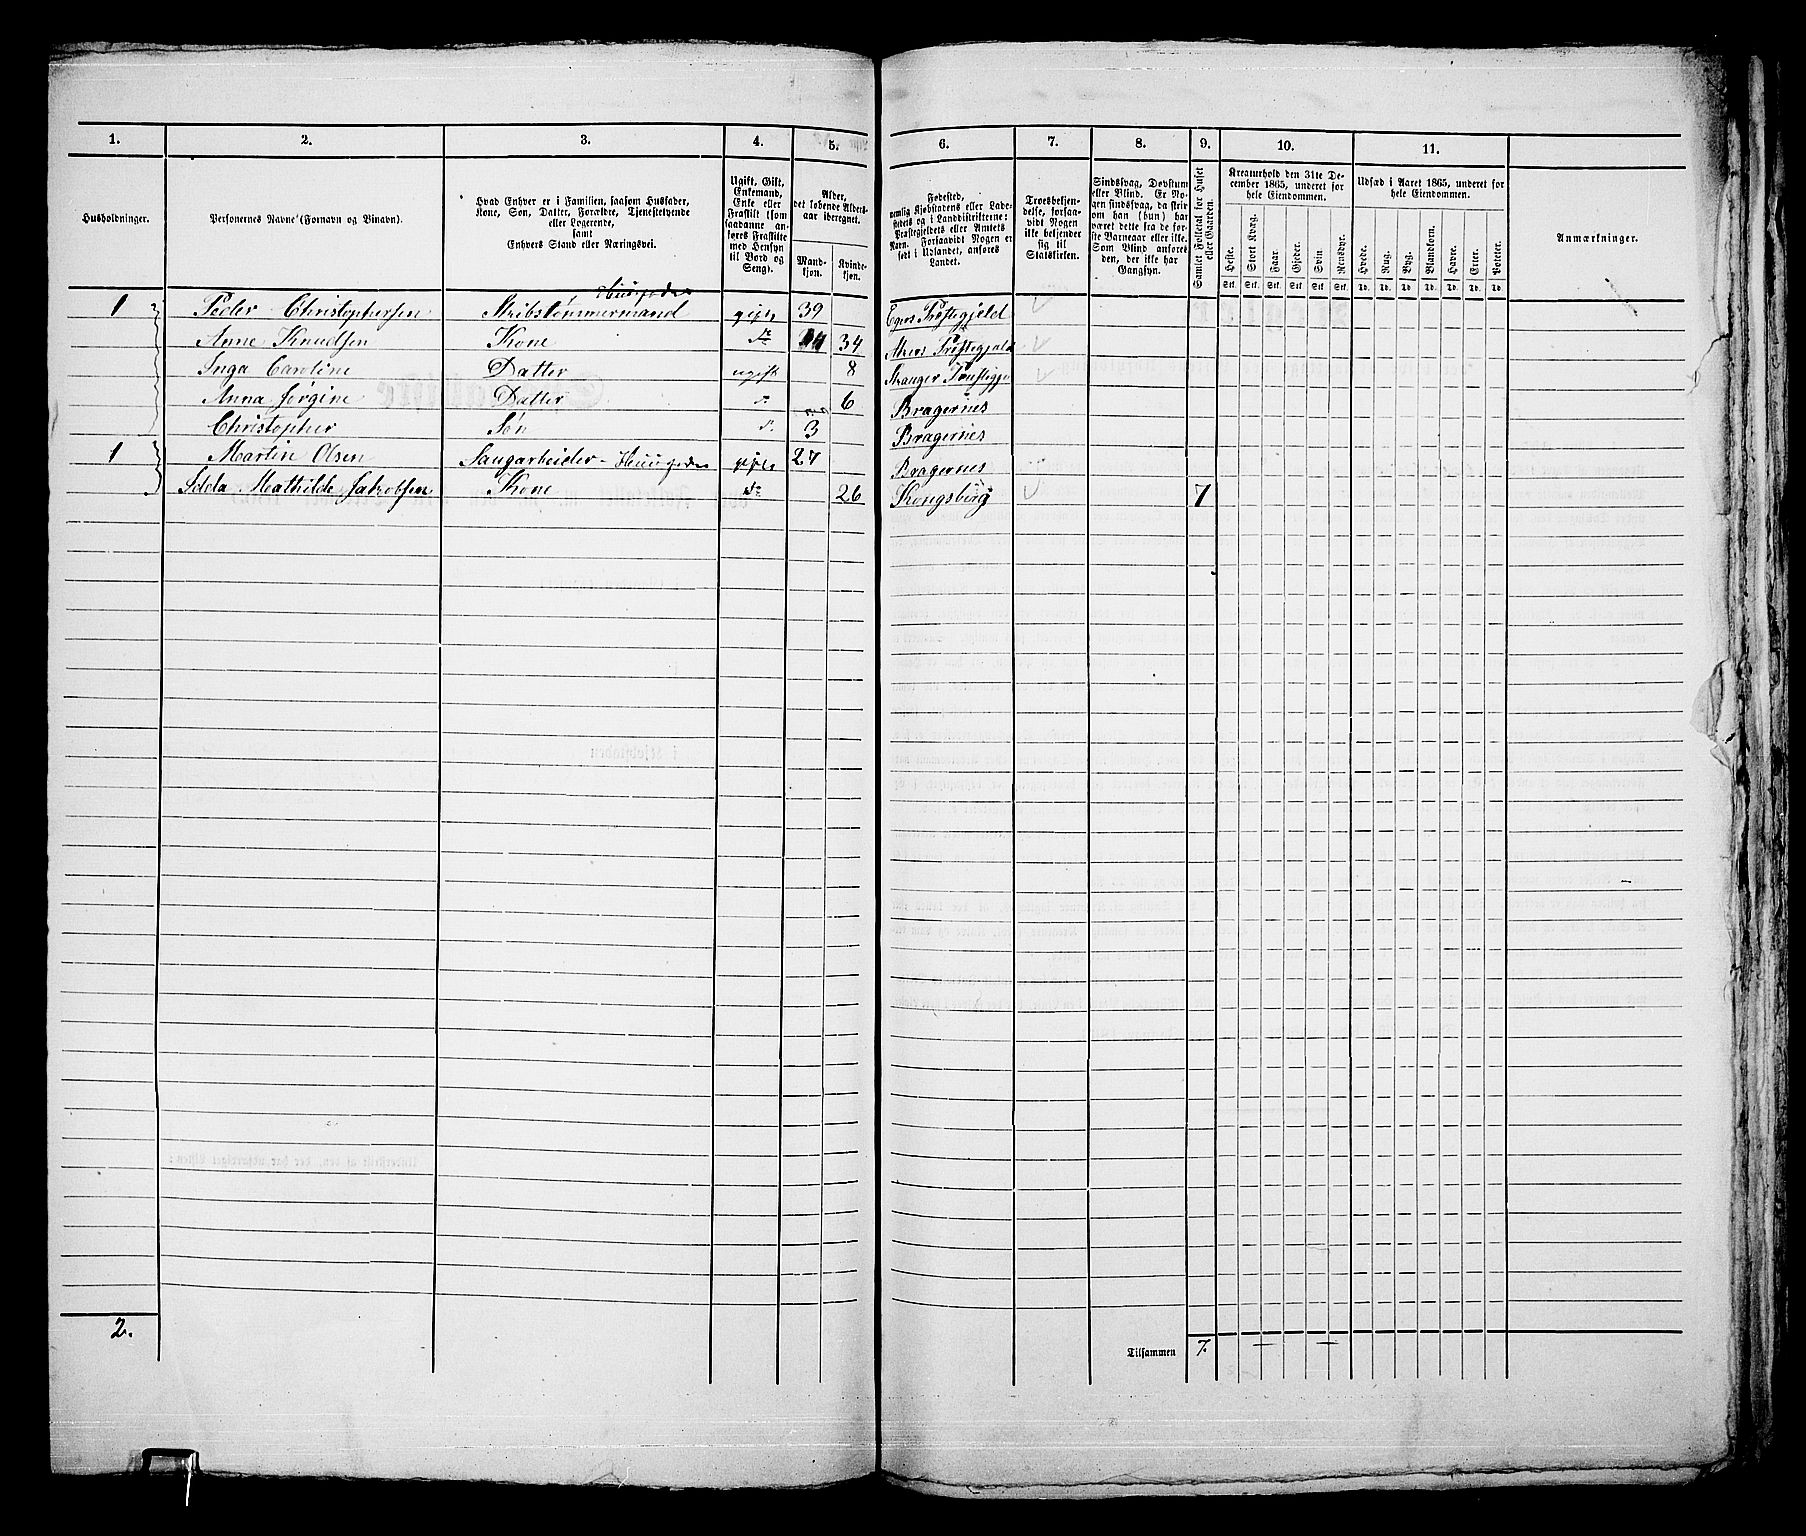 1. 2. 3. 4. 5. 6. 7. 8. 9. 10. 11.
Husholdninger.
Personernes Navne (Fornavn og Binavn).
Hvad Enhver er i Familien, saasom Husfader,
Kone, Søn, Datter, Forældre, Tjenestetyende
eller Logerende,
samt
Enhvers Stand eller Næringsvei.
Ugift, Gift,
Enkemand,
Enke eller
Fraskilt (som
saadanne an-
føres Fraskilte
med Hensyn
til Bord og
Seng).
Alder,
det løbende Alders-
aar iberegnet.
Mand-
kjøn.
Kvinde-
kjøn.
Fødested,
nemlig Kjøbstadens eller Lade-
stedets og i Landdistrikterne:
Præstegjeldets eller Amtets
Navn. Forsaavidt Nogen er
født i Udlandet, anføres
Landet.
Troesbekjen-
delse, forsaa-
vidt Nogen
ikke bekjender
sig til
Statskirken.
Sindssvag, Døvstum
eller Blind. Er No-
gen sindssvag, da skriv
om han (hun) har
været dette fra de før-
ste Barneaar eller ikke.
Som Blind anføres
den, der ikke har
Gangsyn.
Samlet Folketal for Huset
eller Gaarden.
Kreaturhold den 31te De-
cember 1865, underet for
hele Eiendommen.
Heste. Stort Kvæg. Faar. Gjeder. Svin. Rensdyr.
Stk. Stk. Stk. Stk. Stk. Stk.
Udsæd i Aaret 1865, underet for
hele Eiendommen.
Hvede. Rug. Byg. Blandkorn. Havre. Erter. Poteter.
Td. Td. Td. Td. Td. Td. Td.
Anmærkninger.
1 Peder Christophersen Skibstømmermand gift 39 Egers Præstegjeld
Anne Knudsen Kone do 34 Præstegjeld
Inga Caroline Datter ugift 8
Anna Jørgine Datter d. 6 Bragernes
Christopher Søn d. 3 Bragernes
1 Martin Olsen Saugarbeider gift 27 Bragernes
Mathilde Jakobsen Kone do 26 Kongsberg 7
2.
Tilsammen 7.